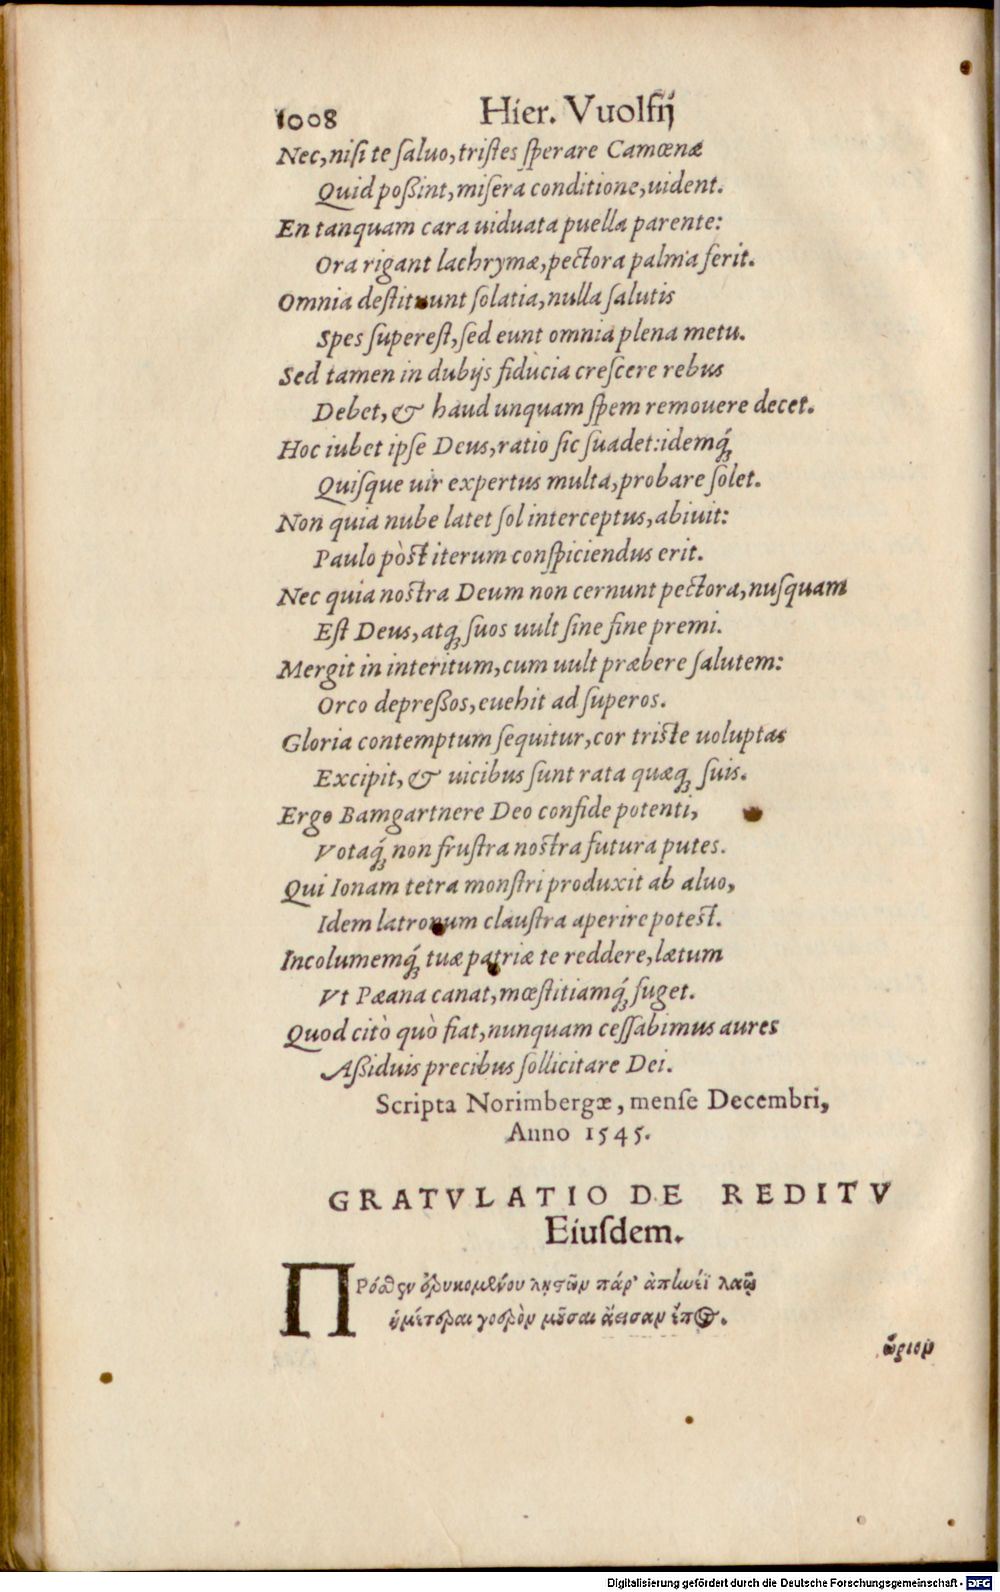 1008 Hier. Vuolfij
Nec, niſi te ſaluo, triſtes ſperare Camœnæ
Quid poßint, miſera conditione, uident.
En tanquam cara uiduata puella parente:
Ora rigant lachrymæ, pectora palma ferit.
Omnia deſtituunt ſolatia, nulla ſalutis
Spes ſupereſt, ſed eunt omnia plena metu.
Sed tamen in dubijs fiducia creſcere rebus
Debet, & haud unquam ſpem remouere decet.
Hoc iubet ipſe Deus, ratio ſic ſuadet: idemq́;
Quiſque uir expertus multa, probare ſolet.
Non quia nube latet ſol interceptus, abiuit:
Paulo pòst iterum conſpiciendus erit.
Nec quia nostra Deum non cernunt pectora, nuſquam
Eſt Deus, atq; ſuos uult ſine fine premi.
Mergit in interitum, cum uult præbere ſalutem:
Orco depreßos, euehit ad ſuperos.
Gloria contemptum ſequitur, cor triste uoluptas
Excipit, & uicibus ſunt rata quæq; ſuis.
Ergo Bamgartnere Deo confide potenti,
Votaq́; non fruſtra nostra futura putes.
Qui Ionam tetra monſtri produxit ab aluo,
Idem latronum clauſtra aperire potest.
Incolumemq́; tuæ patriæ te reddere, lætum
Vt Pæana canat, mœſtitiamq́; fuget.
Quod citò quò fiat, nunquam ceſſabimus aures
Aßiduis precibus ſollicitare Dei.
Scripta Norimbergæ, menſe Decembri,
Anno 1545.
GRATVLATIO DE REDITV
Eiuſdem.
ΠΡόσθεν ἐρυκομένου ληϛῶν πάρ' ἀπηνέϊ λαῷ
ἡμέτεραι γοερὸν μοῦσαι ἄεισαν ἔπος.
ὥριον
Digitalisierung gefördert durch die Deutsche Forschungsgemeinschaft - DFG